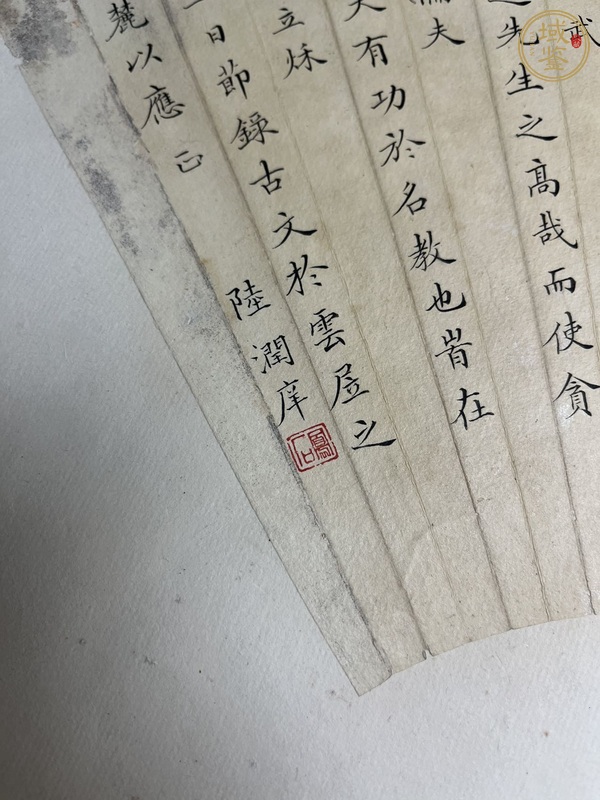 武
先生之髙哉而使貪
夫
有功於名教也旹在
立秌
日節錄古文於雲屋之
麓以應 正
陸潤庠
鳳石
域鉴